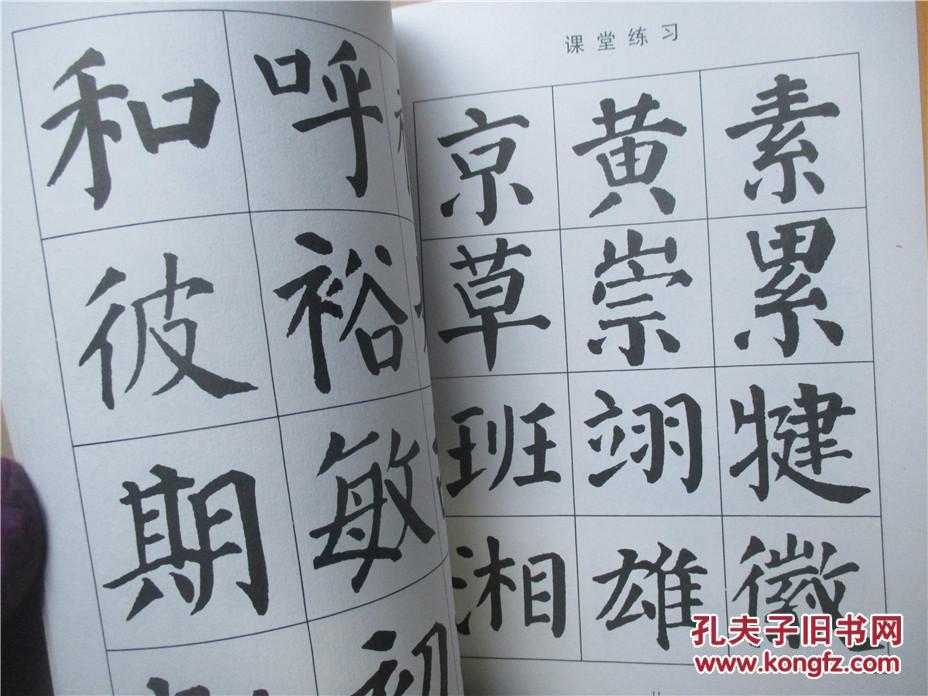 课堂练习
和 呼
彼 裕
期 敏
初
京 黄 素
草 崇 累
班 翊 犍
湘 雄 徽
孔夫子旧书网
www.kongfz.com